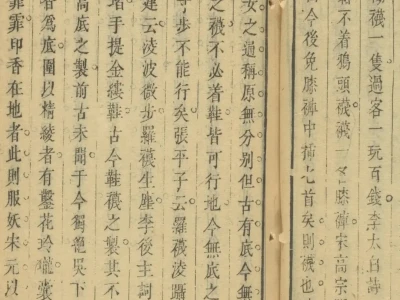 襪一隻過客一玩百錢李太白詩
不着鴉頭襪襪一名膝褲宋高宗
曰今後免膝褲中插匕首矣則襪也
女之通稱原無分別但古有底今無
之襪不必着鞋皆可行地今無底之
步不能行矣張平子云羅襪凌躡
建云凌波微步羅襪生塵李後主詞
堦手提金縷鞋古今鞋襪之製其不
高底之製前古未聞于今獨絕吳下
香為底圍以精綾者有鑿花玲瓏囊
霏霏印香在地者此則服妖宋元以